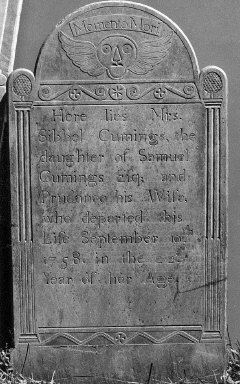 Memento Mori
Here lies Mrs.
Sibbel Cumings, the
daughter of Samuel
Cumings Esq; and
Prudence his Wife,
who departed this
Life September 10th
1758. in the 22d
Year of her Age.